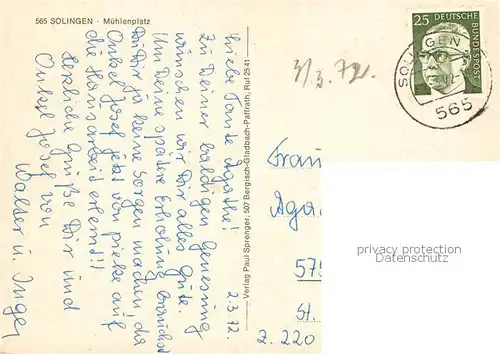 565 SOLINGEN · Mühlenplatz
Liebe Tante Agathe!
Zu Deiner baldigen Genesung
wünschen wir Dir alles Gute.
Um Deine spätere Erholung brauchst
Du Dir ja keine Sorgen machen, da
Onkel Josef jetzt von pieke auf
die Hausarbeit erlernt!!
Herzliche Grüße Dir und
Onkel Josef von
Walter u. Inge
2.3.72
Verlag Paul Sprenger, 507 Bergisch-Gladbach-Paffrath, Ruf 25 41
3/3.72.
25 DEUTSCHE
BUNDESPOST
SOLINGEN
565
Frau
Aga
575
St.
Z. 220
privacy protection
Datenschutz